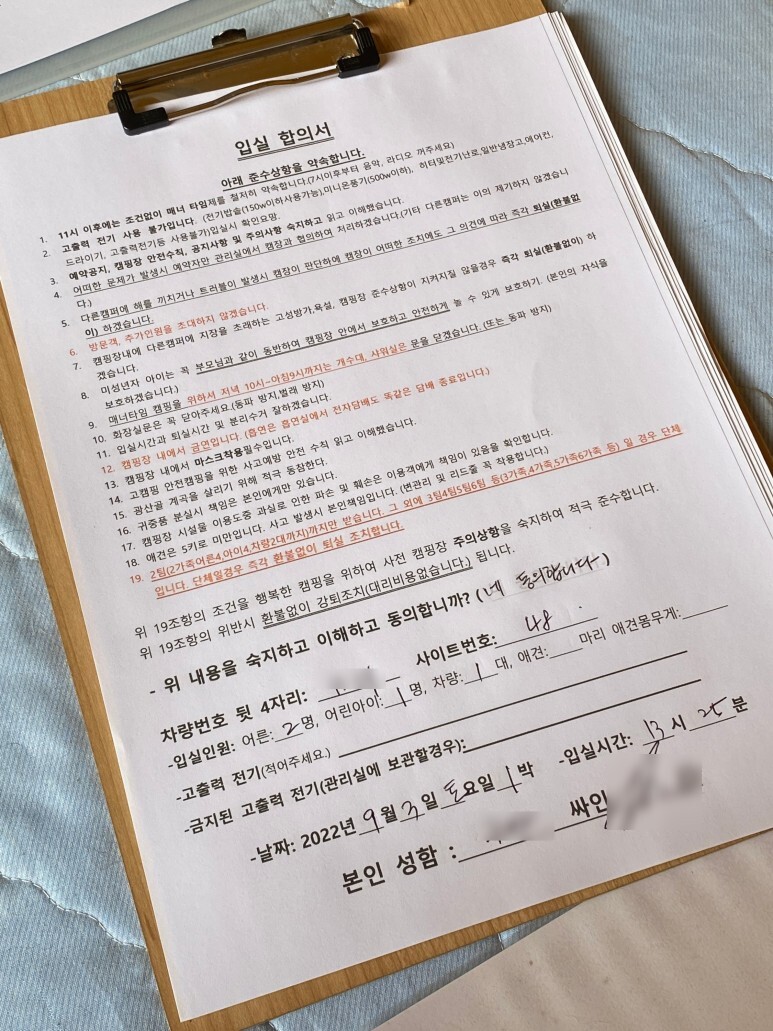 입실 합의서
아래 준수상항을 약속합니다.
1. 11시 이후에는 조건없이 매너 타임제를 철저히 약속합니다.(7시이후부터 음악, 라디오 꺼주세요)
2. 고출력 전기 사용 불가입니다. (전기밥솥(150w이하사용가능),미니온풍기(500w이하), 히터및전기난로,일반냉장고,에어컨,
드라이기, 고출력전기등 사용불가)입실시 확인요망.
3. 예약공지, 캠핑장 안전수칙, 공지사항 및 주의사항 숙지하고 읽고 이해했습니다.
4. 어떠한 문제가 발생시 예약자만 관리실에서 캠장과 협의하여 처리하겠습니다.(기타 다른캠퍼는 이의 제기하지 않겠습니
다.)
5. 다른캠퍼에 해를 끼치거나 트러블이 발생시 캠장이 판단하에 캠장이 어떠한 조치에도 그 의견에 따라 즉각 퇴실(환불없
이) 하겠습니다.
6. 방문객, 추가인원을 초대하지 않겠습니다.
7. 캠핑장내에 다른캠퍼에 지장을 초래하는 고성방가,욕설, 캠핑장 준수상항이 지켜지질 않을경우 즉각 퇴실(환불없이) 하
겠습니다.
8. 미성년자 아이는 꼭 부모님과 같이 동반하여 캠핑장 안에서 보호하고 안전하게 놀 수 있게 보호하기. (본인의 자식을
보호하겠습니다.)
9. 매너타임 캠핑을 위하서 저녁 10시~아침9시까지는 개수대, 샤워실은 문을 닫겠습니다.(또는 동파 방지)
10. 화장실문은 꼭 닫아주세요.(동파 방지,벌래 방지)
11. 입실시간과 퇴실시간 및 분리수거 잘하겠습니다.
12. 캠핑장 내에서 금연입니다. (흡연은 흡연실에서 전자담배도 똑같은 담배 종료입니다.)
13. 캠핑장 내에서 마스크착용필수입니다.
14. 고캠핑 안전캠핑을 위한 사고예방 안전 수칙 읽고 이해했습니다.
15. 광산골 계곡을 살리기 위해 적극 동참한다.
16. 귀중품 분실시 책임은 본인에게만 있습니다.
17. 캠핑장 시설물 이용도중 과실로 인한 파손 및 훼손은 이용객에게 책임이 있음을 확인합니다.
18. 애건은 5키로 미만입니다. 사고 발생시 본인책임입니다. (변관리 및 리드줄 꼭 착용합니다.)
19. 2팀(2가족어른4,아이4,차량2대까지)까지만 받습니다. 그 외에 3팀4팀5팀6팀 등(3가족,4가족,5가족6가족 등) 일 경우 단체
입니다. 단체일경우 즉각 환불없이 퇴실 조치합니다.
위 19조항의 조건을 행복한 캠핑을 위하여 사전 캠핑장 주의상항을 숙지하여 적극 준수합니다.
위 19조항의 위반시 환불없이 강퇴조치(대리비용없습니다.) 됩니다.
- 위 내용을 숙지하고 이해하고 동의합니까? (네 동의합니다)
차량번호 뒷 4자리: 사이트번호: 48
-입실인원: 어른: 2명, 어린아이: 1명, 차량: 1대, 애견: 마리 애견몸무게:
-고출력 전기(적어주세요.)
-금지된 고출력 전기(관리실에 보관할경우):
-날짜: 2022년 9월 3일 토요일 1박 -입실시간: 13시 25분
본인 성함 : 싸인